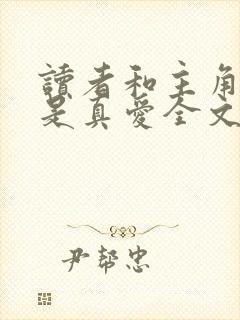 讀者和主角
是真愛全文
尹幇忠